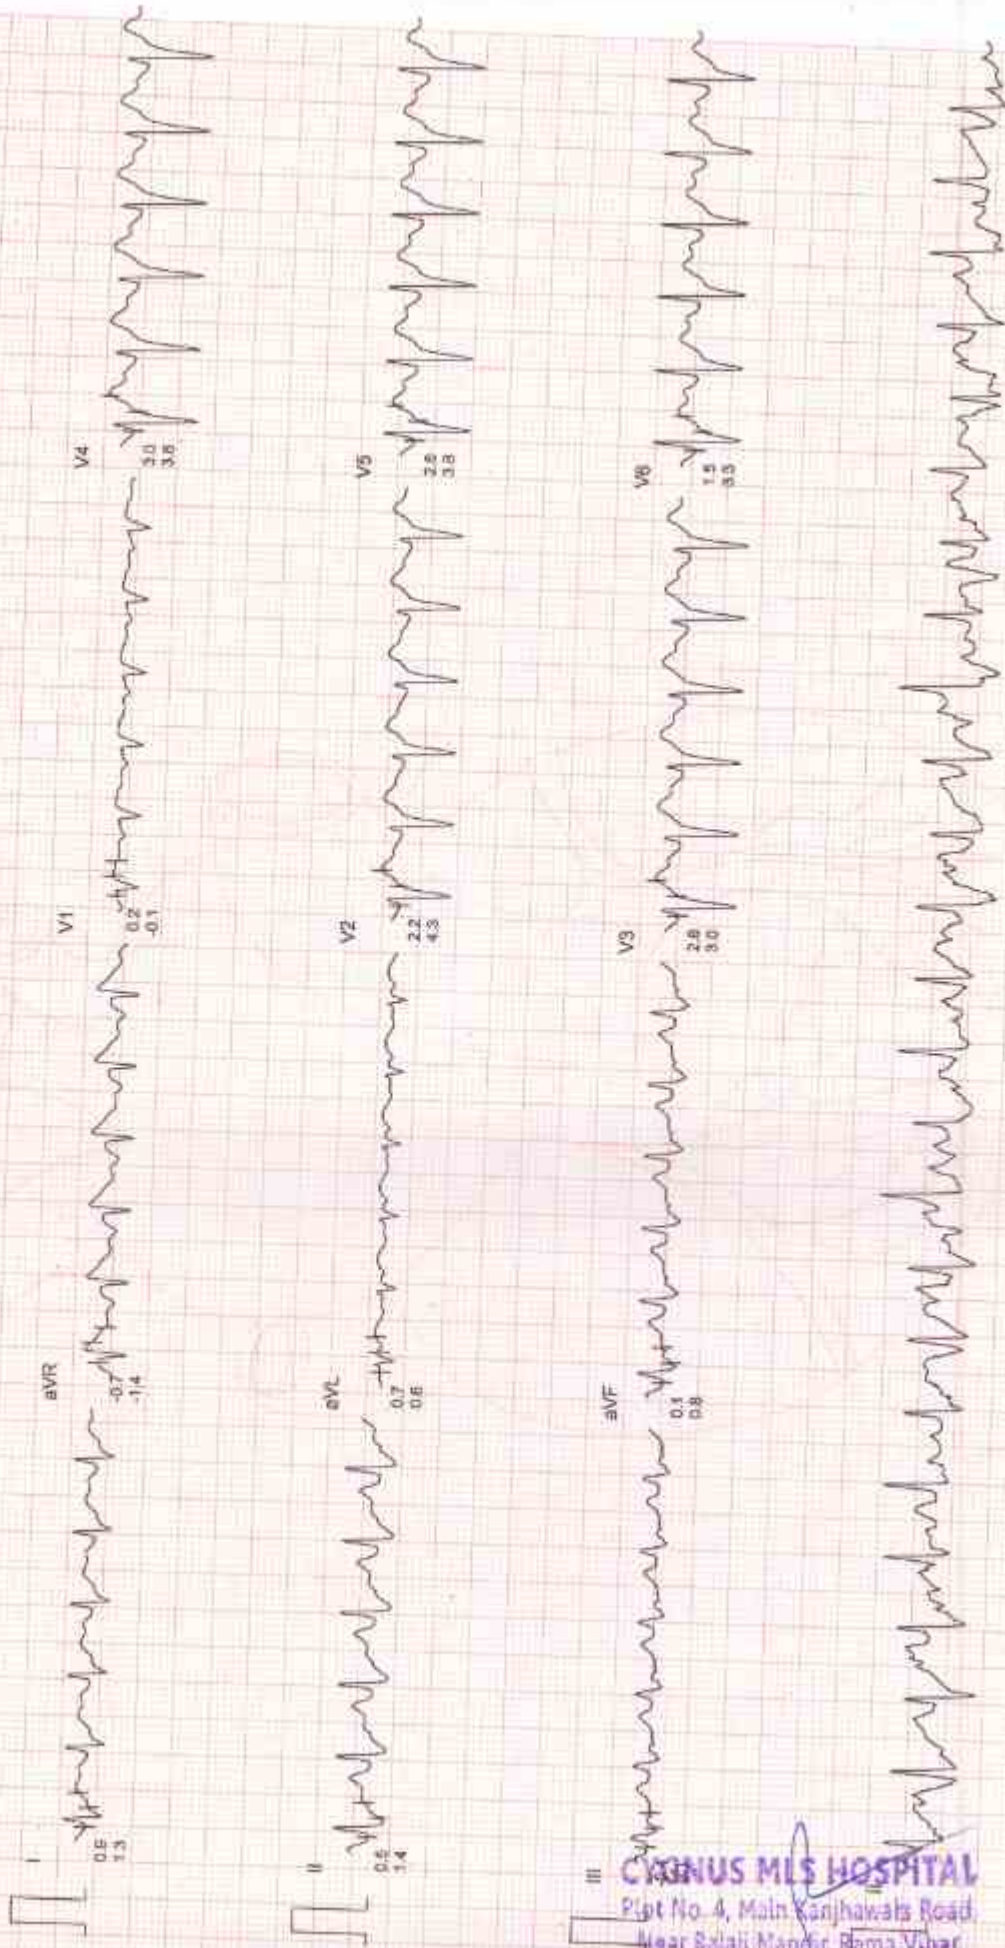 I
0.9
1.3
aVR
-0.7
-1.4
V1
0.2
-0.1
V4
3.0
3.8
II
0.5
1.4
aVL
0.7
0.6
V2
2.2
4.3
V5
2.6
3.8
III
aVF
0.1
0.8
V3
2.6
3.0
V6
1.5
3.3
II
CYGNUS MLS HOSPITAL
Plot No. 4, Main Kanjhawala Road,
Near Balaji Mandir, Rama Vihar